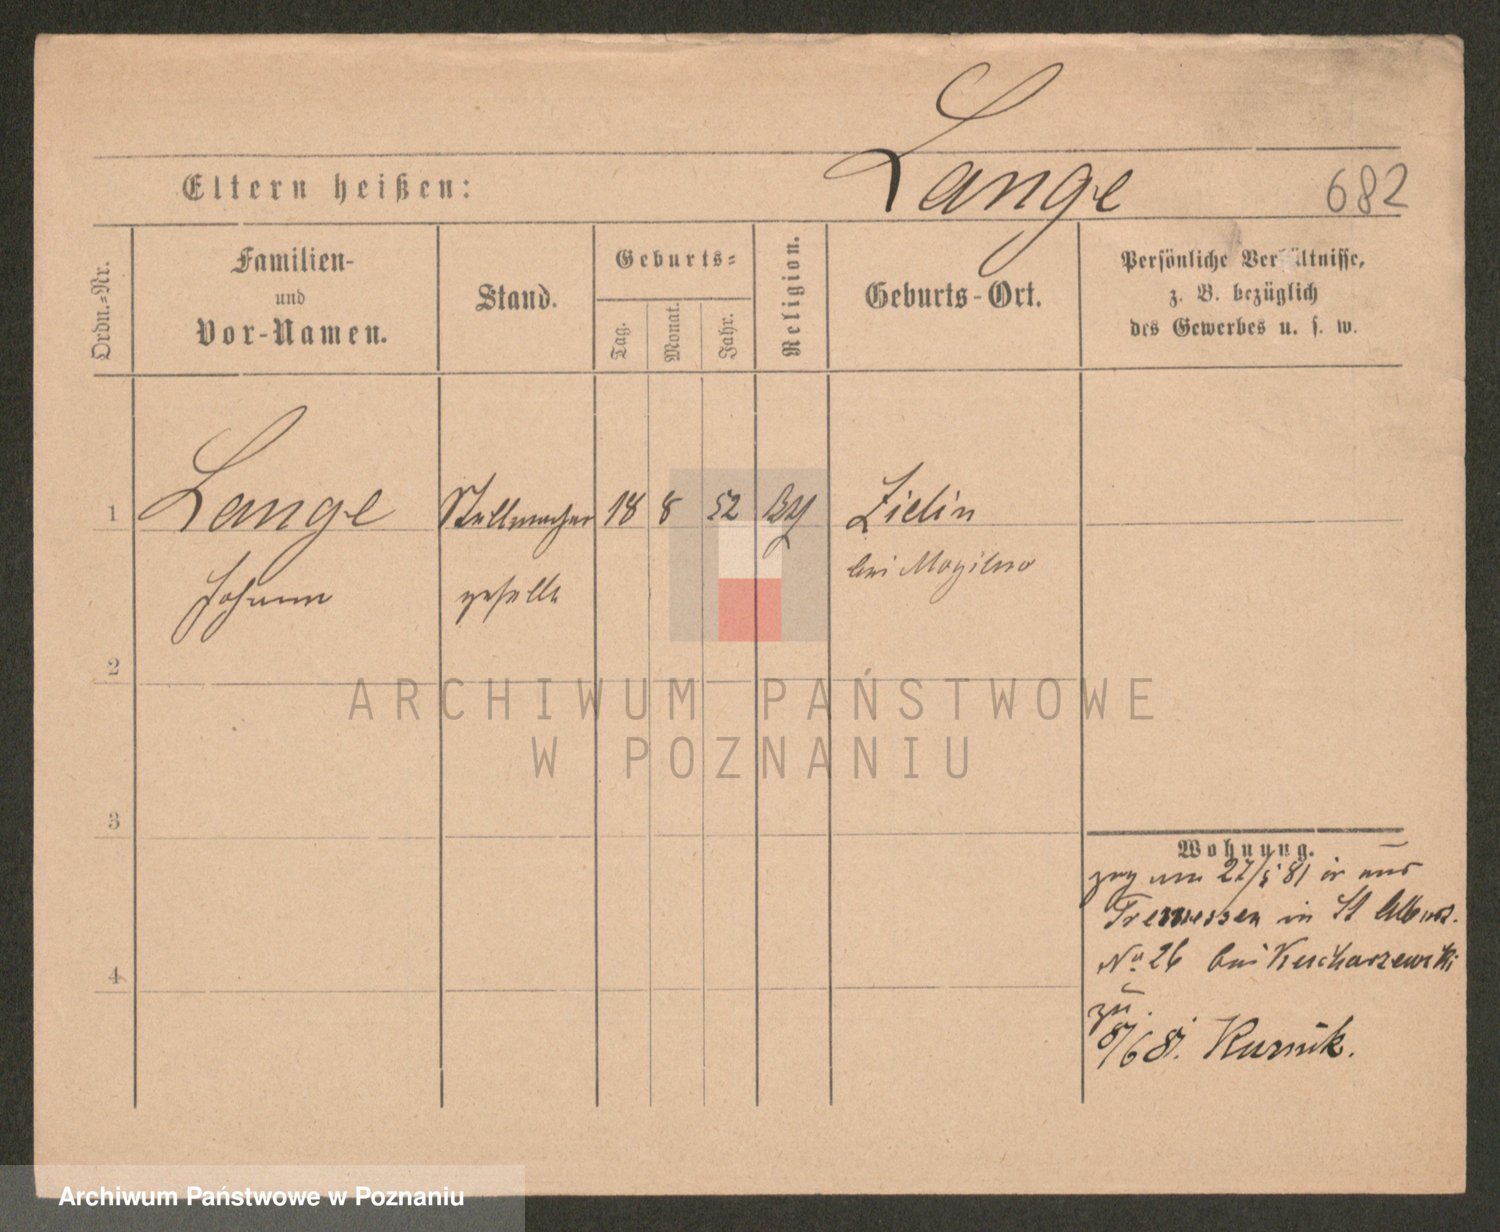 Lange
Eltern heißen:
682
Ordn.=Nr.
Familien-
und
Vor-Namen.
Stand.
Geburts=
Tag.
Monat.
Jahr.
Religion.
Geburts-Ort.
Persönliche Verhältnisse,
z. B. bezüglich
des Gewerbes u. s. w.
1
Lange
Stellmacher
18
8
52
Zielin
Johann
geselle
bei Mogilno
2
ARCHIWUM PAŃSTWOWE
W POZNANIU
3
Wohnung.
zog am 27/5 81 aus
Tremessen in St
No 26 bei Kucharzewski
4
zu
8/6 81. Kurnik.
Archiwum Państwowe w Poznaniu